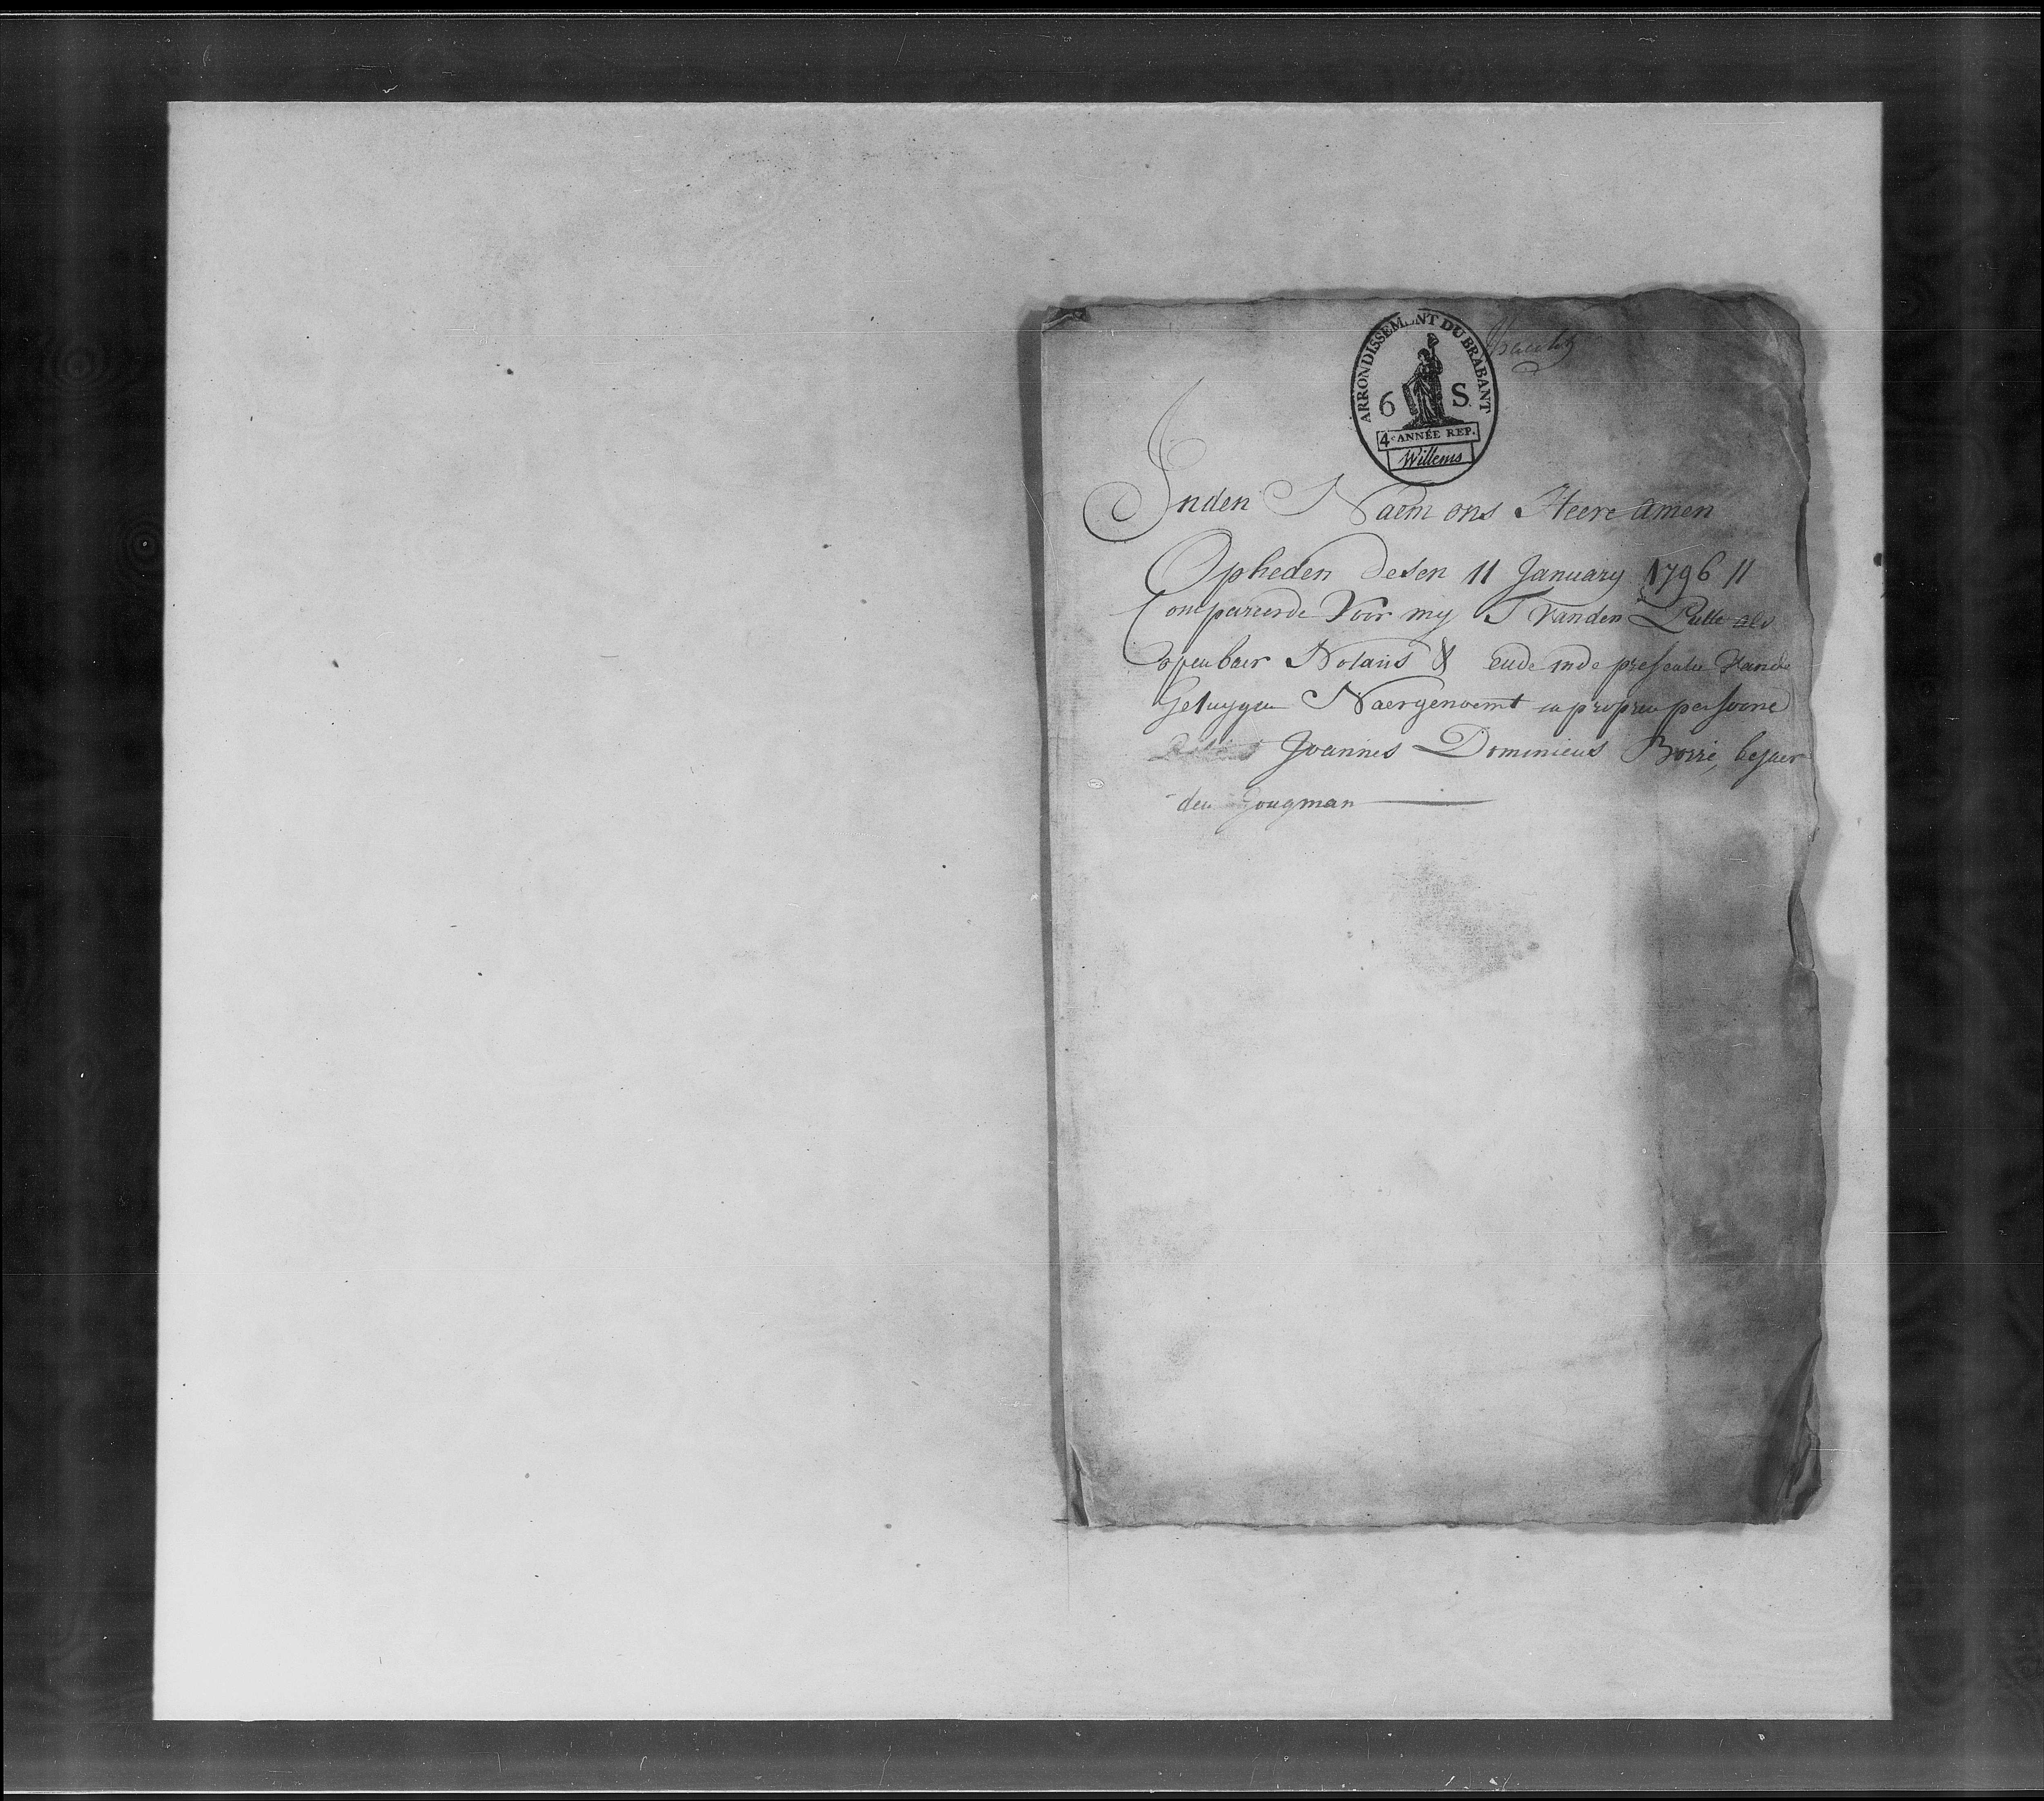 ARRONDISSEMENT DU BRABANT
6 S.
4e ANNÉE REP.
Willems
Inden Naem ons Heere amen
Opheden desen 11 January 1796 //
Compareerde Voor my J Vanden Putte als
openbaer Notaris & ende inde presentie Vande
Getuygen Naergenoemt in propren persoone
Joannes Dominicus Borré, bejaer
den Jougman